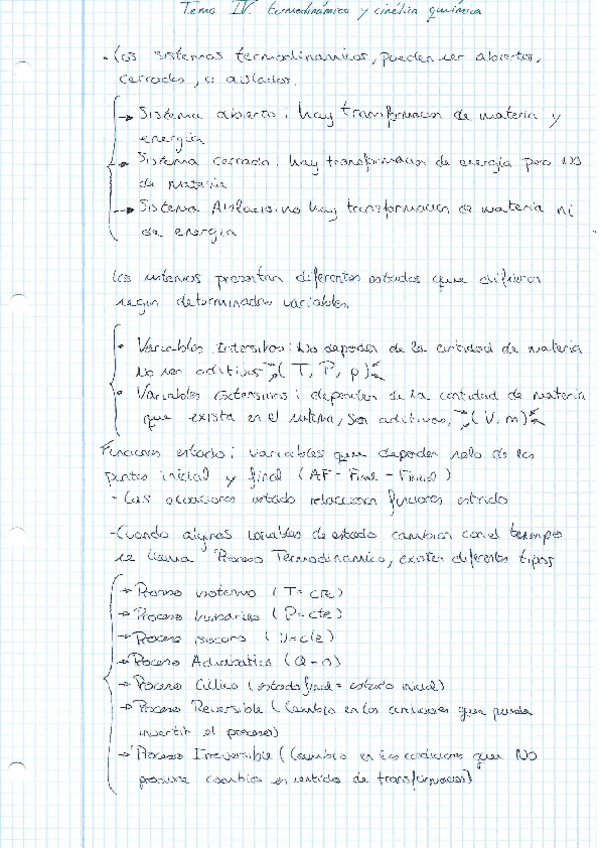 Tema IV. termodinámica y cinética química
· Los sistemas termodinamicos, pueden ser abiertos,
cerrados, o aislados.
→ Sistema abierto: hay transformacion de materia y
energia
→ Sistema cerrado: hay transformacion de energia pero NO
de materia
→ Sistema Aislado: no hay transformacion de materia ni
de energia
Los sistemas presentan diferentes estados que difieren
segun determinadas variables.
· Variables Intensivas: No dependen de la cantidad de materia
no son aditivas (T, P, ρ)
· Variables Extensivas: dependen de la cantidad de materia
que exista en el sistema, son aditivas, (V, m)
Funciones estado: variables que dependen solo de los
puntos inicial y final (ΔF = Ffinal - Finicial)
- Las ecuaciones estado relacionan funciones estado
- Cuando algunas variables de estado cambian con el tiempo
se llama Proceso Termodinamico, existen diferentes tipos
→ Proceso isotermo (T = cte)
→ Proceso isobarico (P = cte)
→ Proceso isocoro (V = cte)
→ Proceso Adiabatico (Q = 0)
→ Proceso Cíclico (estado final = estado inicial)
→ Proceso Reversible (Cambio en las condiciones que puede
invertir el proceso)
→ Proceso Irreversible (Cambio en las condiciones que NO
produce cambios en sentido de transformacion)